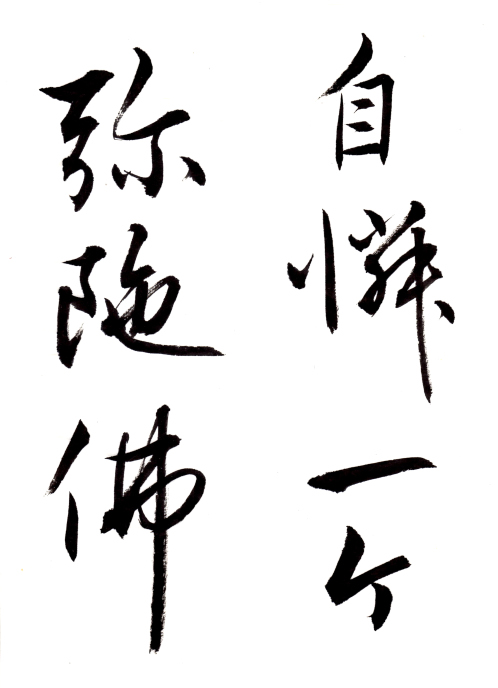 自憐一个
弥陀佛